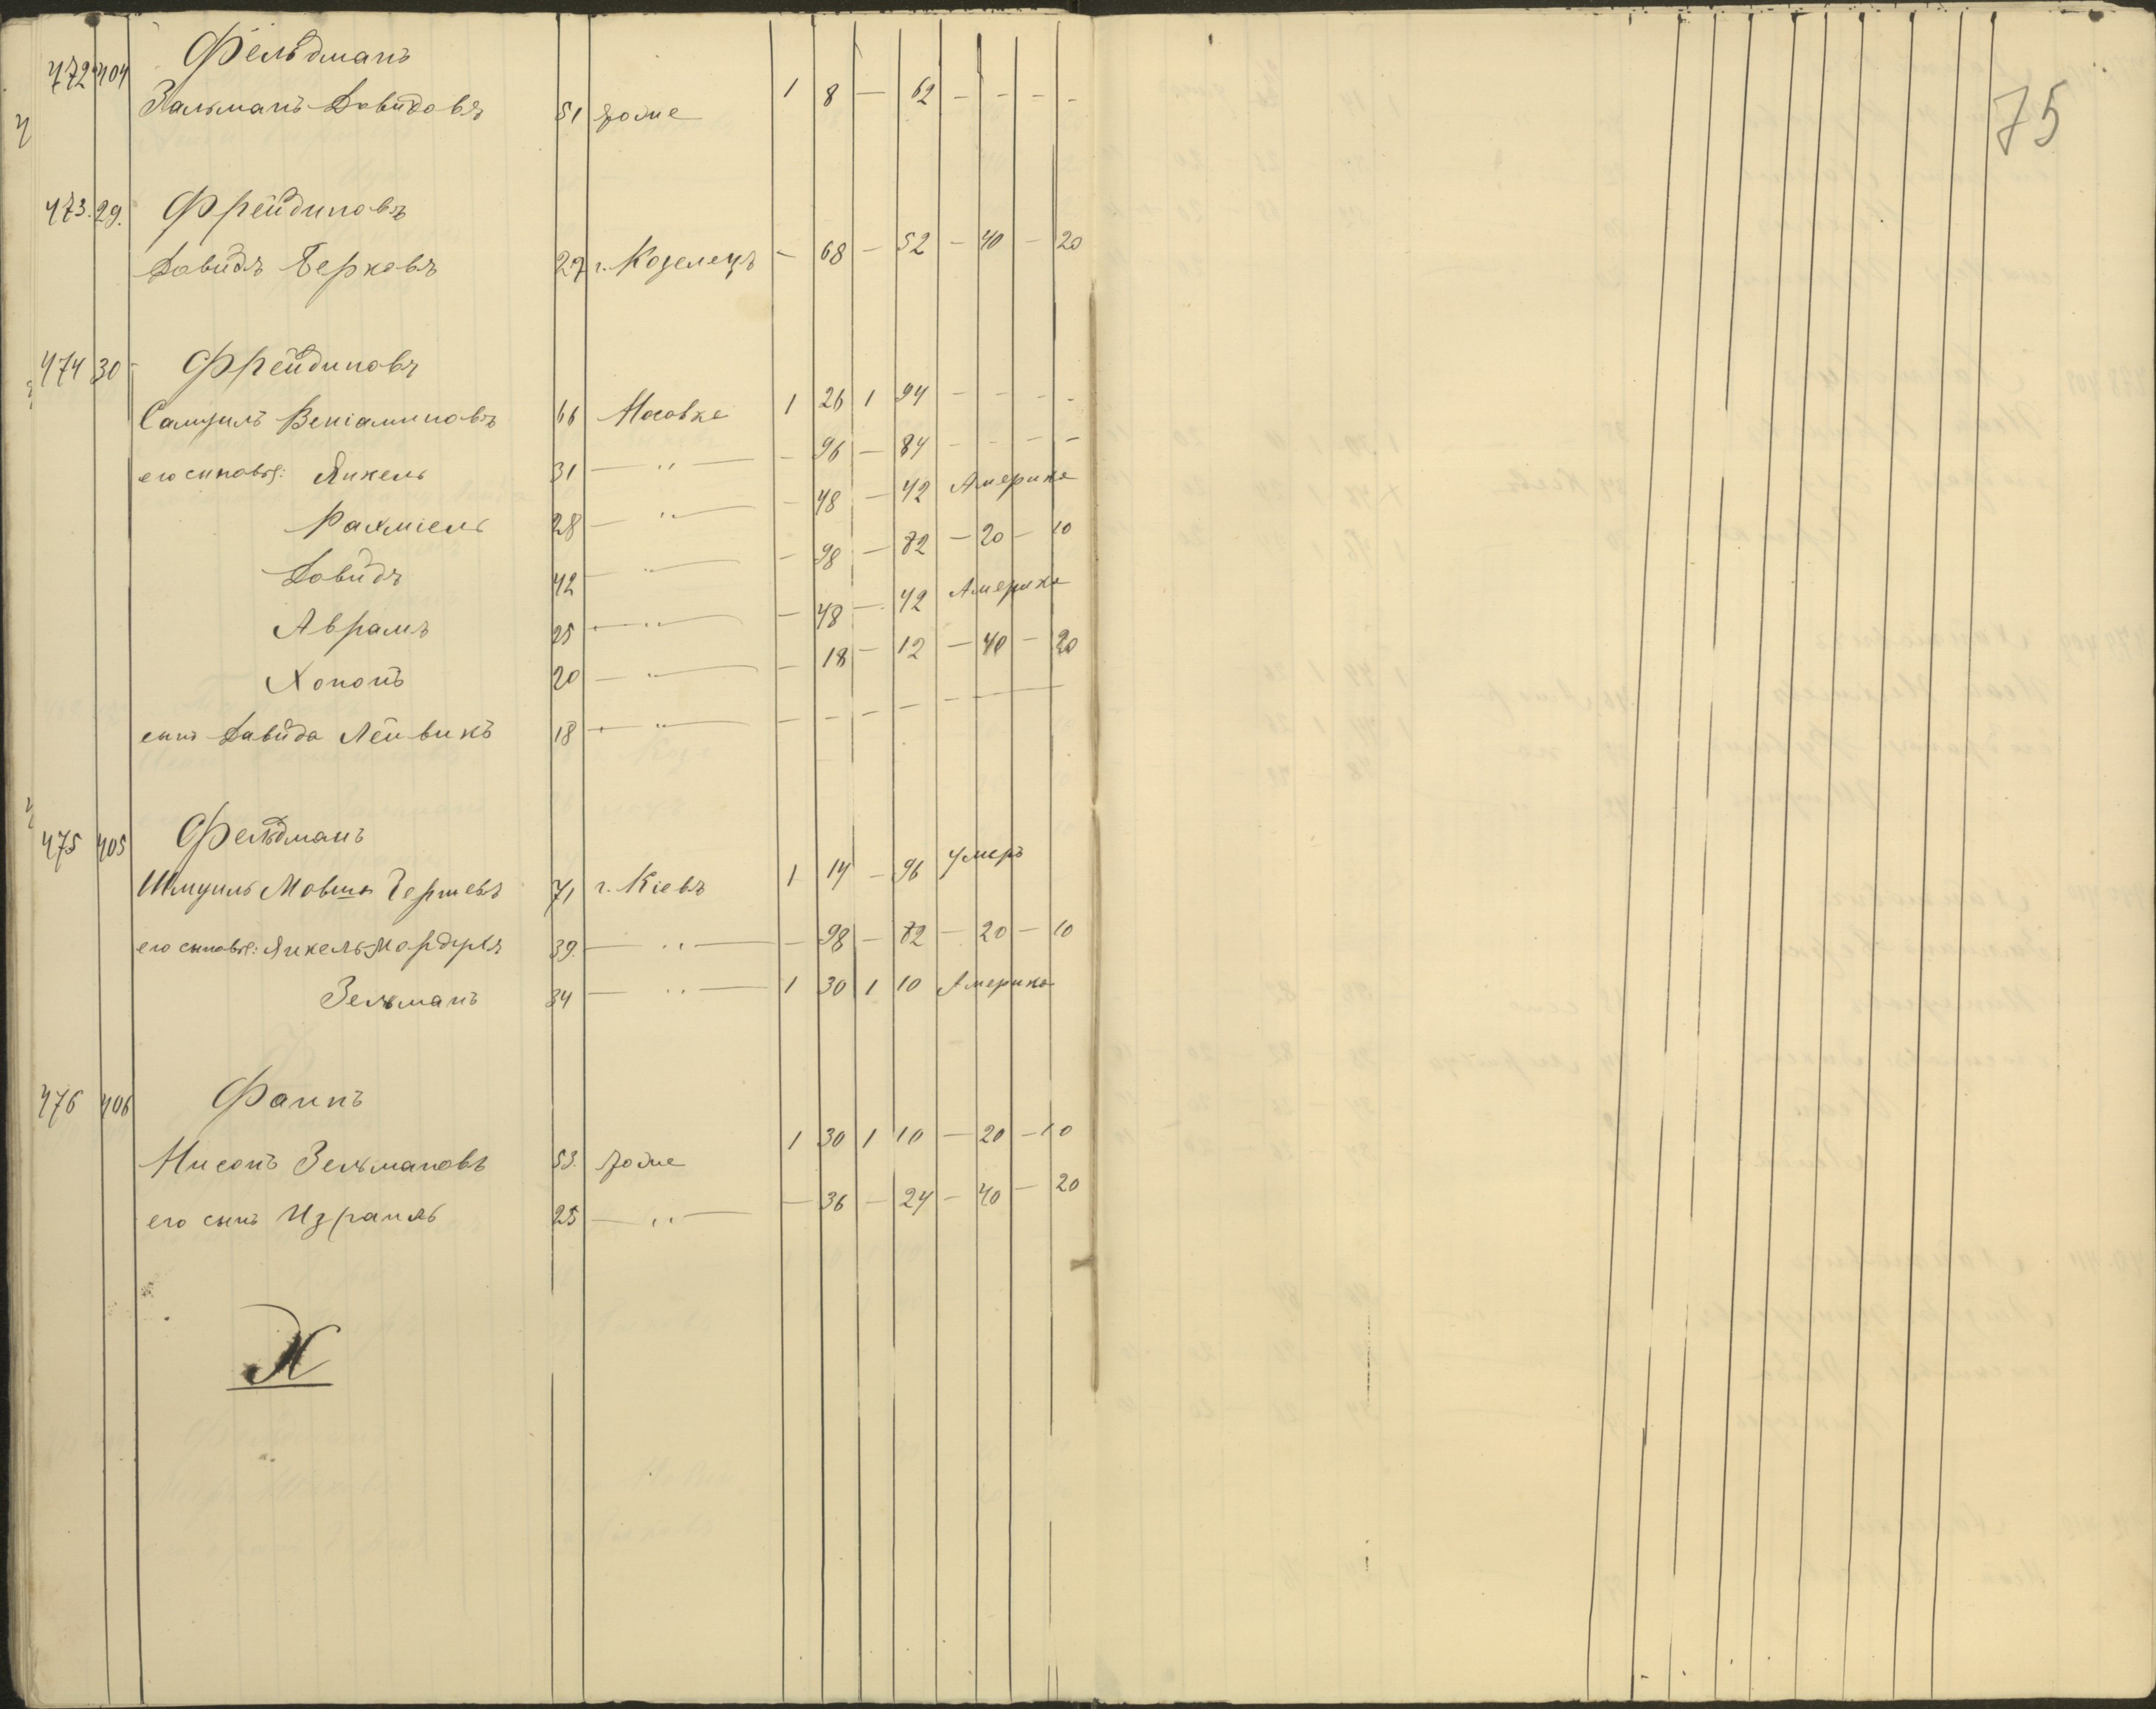 75
472 404 Фельдманъ
Залманъ Давидовъ 51 1 8 — 62 — — — —
473. 29. Фрейдиновъ
Давидъ Берковъ 27 г. Козелецъ — 68 — 52 — 40 — 20
474 30 Фрейдиновъ
Самуилъ Веніаминовъ 66 Носовке 1 26 1 94 — — — —
его сыновья: Янкель 31 — " — — 96 — 84 — — — —
Рахміель 28 — " — — 48 — 42 Америка
Давидъ 42 — " — — 98 — 82 — 20 — 10
Аврамъ 25 — " — — 48 — 42 Америка
Хононъ 20 — " — — 18 — 12 — 40 — 20
сынъ Давида Лейвикъ 18 — " — — — — — — —
475 405 Фельдманъ
Шмуилъ Мовша Гершевъ 71 г. Кіевъ 1 14 — 96 умеръ
его сыновья: Янкель-Мордухъ 39. — " — — 98 — 82 — 20 — 10
Зельманъ 34 — " — 1 30 1 10 Америка
476 406 Фаинъ
Нисонъ Зельмановъ 53. 1 30 1 10 — 20 — 10
его сынъ Израиль 25 — " — — 36 — 24 — 40 — 20
Х